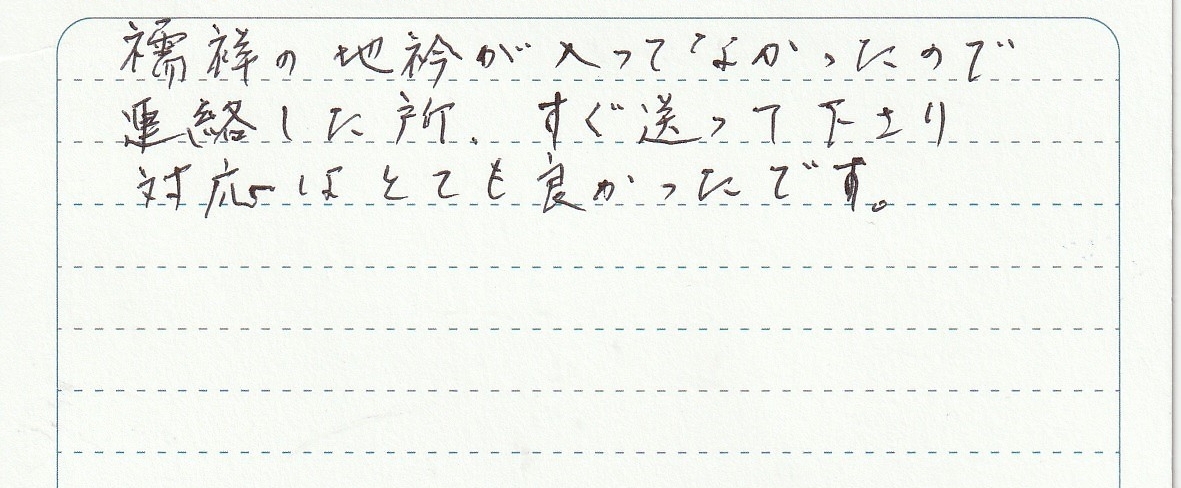 襦袢の地衿が入ってなかったので
連絡した所、すぐ送って下さり
対応はとても良かったです。